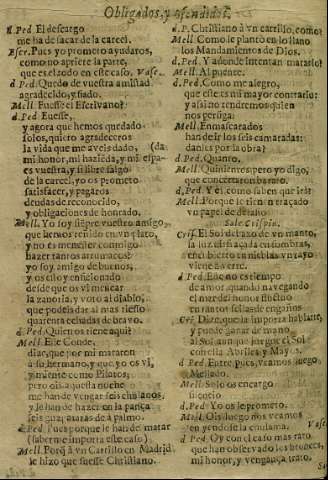 Obligados, y ofendidos.
d. Ped. El descargo
me ha de sacar de la carcel.
Escr. Pues yo prometo ayudaros,
como no apriete la parte,
que es el todo en este caso. Vase.
d. Ped. Quedo de vuestra amistad
agradecido, y fiado.
Mell. Fuesse el Escrivano?
d. Ped. Fuesse,
y agora que hemos quedado
solos, quiero agradeceros
la vida que me aveis dado,
mi honor, mi hazieda, y mi espa- (da
es vuestra, y si libre salgo
de la carcel, yo os prometo
satisfacer, y pagaros
deudas de reconocido,
y obligaciones de honrado.
Mell. Yo soy siempre vuestro amigo,
que hemos reñido en un plato,
y no es menester conmigo
hazer tantos arrumacos:
yo soy amigo de buenos,
y os estoy aficionado
desde que os vi menear
la zanoria, y voto al diablo,
que podeis dar al mas
quarenta echadas de bravo.
d. Ped. Quien os tiene aqui?
Mell. Este Conde,
dize, que por mi mataron
a su hermano, y que yo os vi,
y miente como Pilatos,
pero oy a questa noche
me han de vengar seis christianos,
y le han de hazer en la pança
seis de palmo.
d. Ped. Pues porque le han de matar
(saberme importa este caso)
Mell. Porq à un Carrillo en Madrid
le hizo que fuesse Christiano.
d. P. Christiano à un carrillo, como?
Mell. Como le plantò en lo llano
los Mandamientos de Dios.
d. Ped. Y adonde intentan matarlo?
Mell. Al puente.
d. Ped. Como me alegro,
que esse es mi mayor contrario:
y assi no tendremos quien
nos persiga:
Mell. Enmascarados
han de ir los seis camaradas:
danles por la obra?
d. Ped. Quanto.
Mell. Quinientos pero yo digo,
que concertaron barato.
d. Ped. Y el como saben que es?
Mell. Porque le tienen traçado
en papel de
Sale Crispin.
Cris. El Sol detràs de un manto,
la luz en sombras,
y encubierto en nieblas un rayo
viene à verte.
d. Ped. Esse no es tiempo
de amor, quando navegando
el mar del honor fluctuo
en tantos engaños
Cri. Dize, que la importa hablarte,
y puede ganar de mano
al Sol aunque juegue el Sol
con ella Abriles, y Mayos.
d. Ped. Entre pues, veamos luego
Mellado.
Mell. Solo os encargo
silencio
d. Ped. Yo os le prometo.
Mell. Ois? luego nos veamos
en yendose la christiana. Vase
d. Ped. Oy con el caso mas raro
que han observado los bronces,
mi honor, y vengança trato.